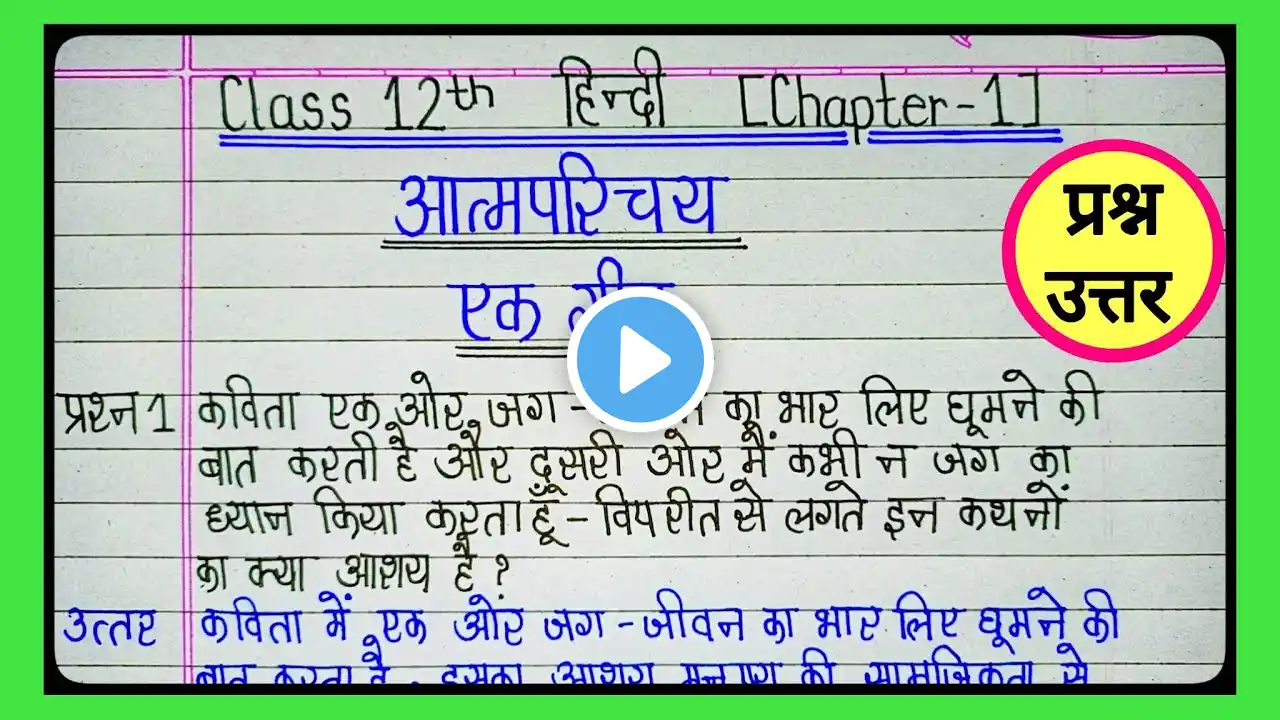 Class 12th हिन्दी [Chapter-1]
आत्मपरिचय
एक
प्रश्न
उत्तर
प्रश्न 1 कविता एक ओर जग - का भार लिए घूमने की
बात करती है और दूसरी ओर मैं कभी न जग का
ध्यान किया करता हूँ - विपरीत से लगते इन कथनों
का क्या आशय है ?
उत्तर कविता में एक ओर जग - जीवन का भार लिए घूमने की
बात करता है . इसका आशय मनुष्य की सामाजिकता से